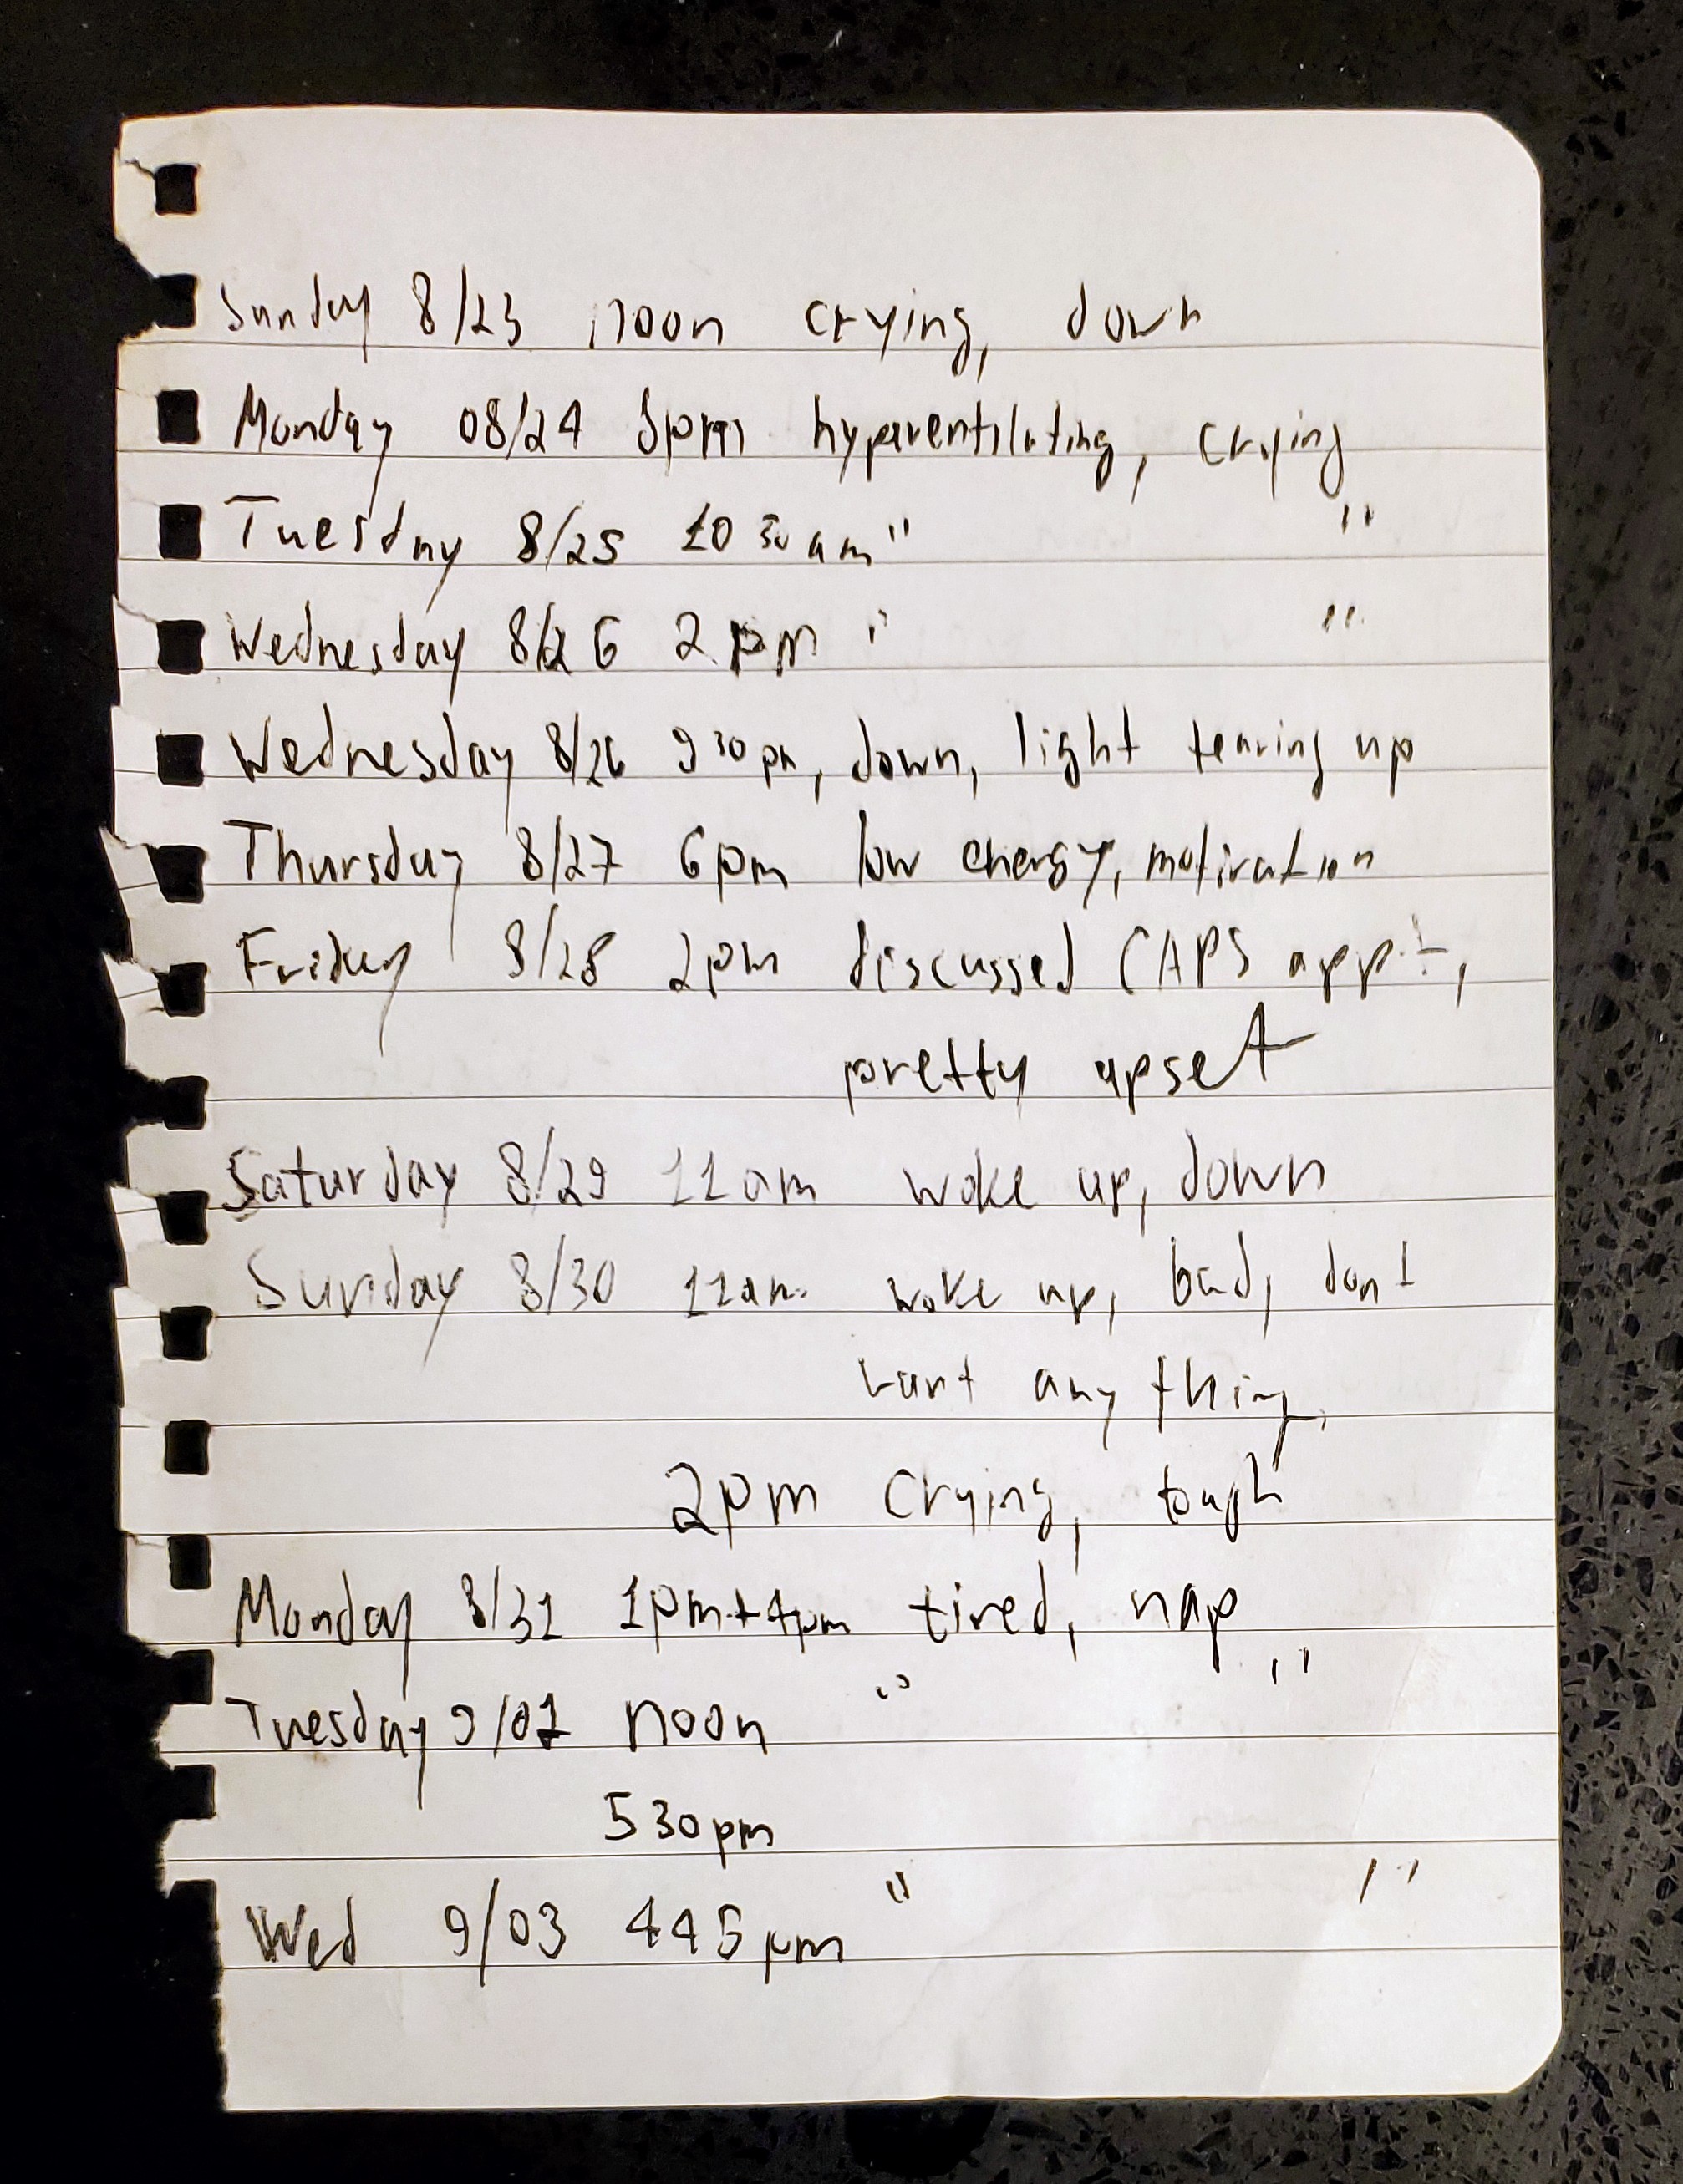 Sunday 8/23 noon crying, down
Monday 08/24 5pm hyperventilating, crying
Tuesday 8/25 10 30 am " "
Wednesday 8/26 2 pm " "
Wednesday 8/26 9 30 pm, down, light tearing up
Thursday 8/27 6pm low energy, motivation
Friday 8/28 2pm discussed CAPS appt,
pretty upset
Saturday 8/29 11am woke up, down
Sunday 8/30 11am woke up, bad, dont
want anything,
2pm crying, tough
Monday 8/31 1pm+4pm tired, nap
Tuesday 9/01 noon " "
530pm
Wed 9/03 445pm " "